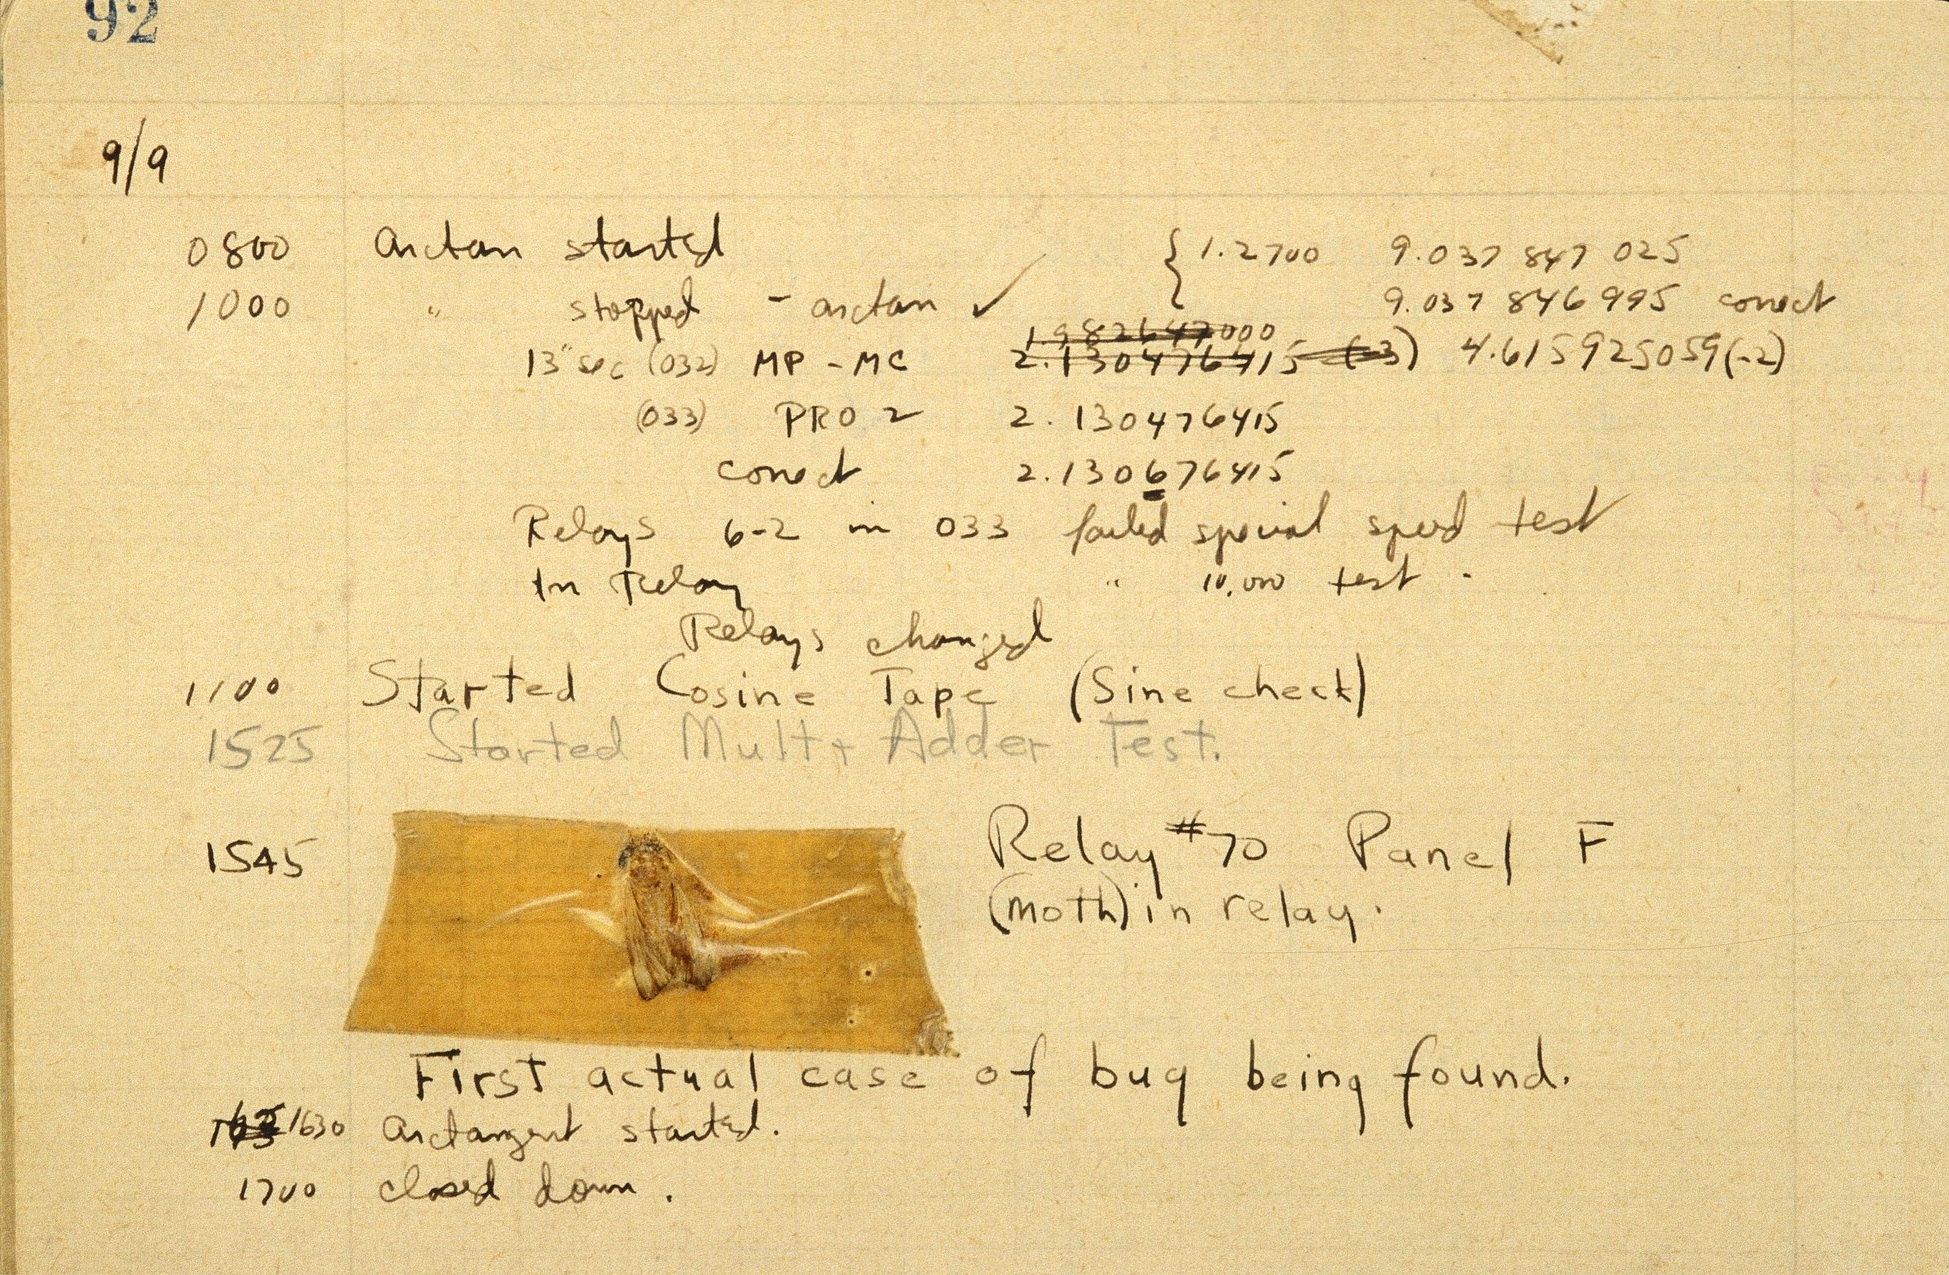 92
9/9
0800 arctan started { 1.2700 9.037 847 025
1000 " stopped - arctan ✓ 9.037 846 995 conect
1.982647000
13" sec (032) MP - MC 2.130476415 (-3) 4.615925059(-2)
(033) PRO 2 2.130476415
conect 2.130676415
Relays 6-2 in 033 failed special speed test
In Relay " 10,000 test .
Relays changed
1100 Started Cosine Tape (Sine check)
1525 Started Mult + Adder Test.
1545 Relay #70 Panel F
(moth) in relay.
First actual case of bug being found.
1630 arctangent started.
1700 closed down.